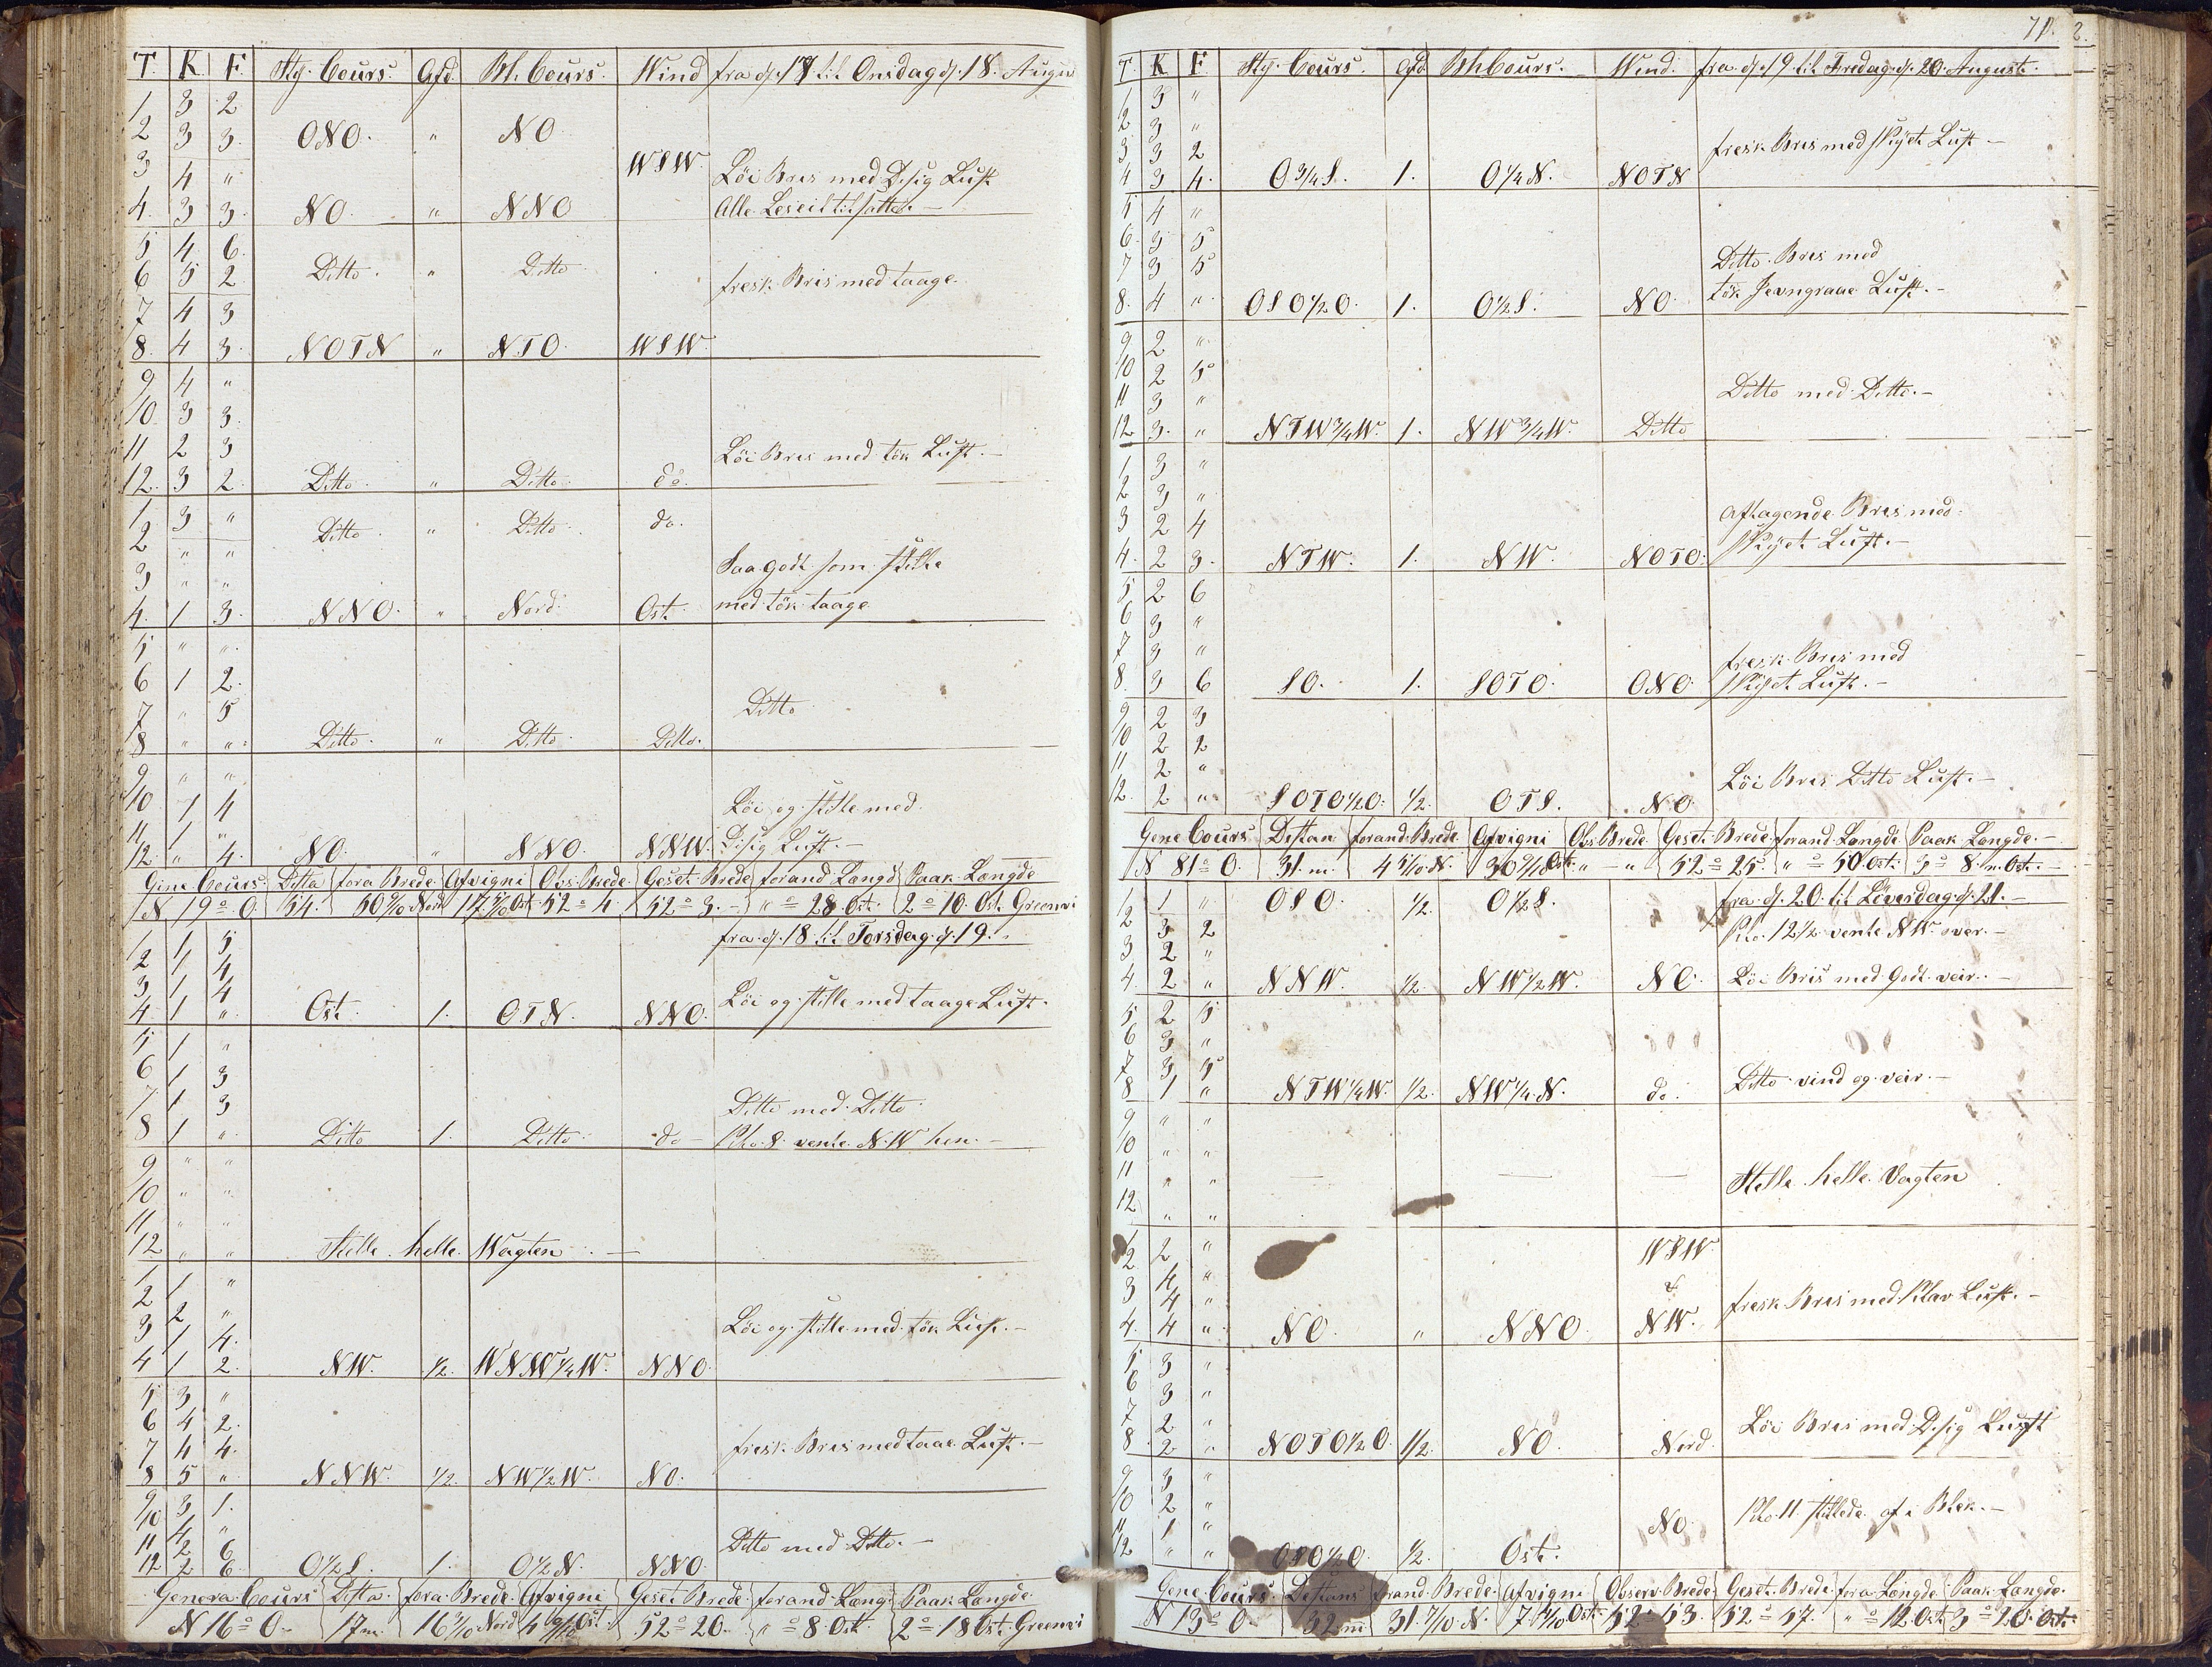 T. K. F. Stÿ. Cours. Afd. Bh. Cours. Wind fra d. 17 til Onsdag d. 18. August
1 3 2
2 3 3. ONO. " NO
3 4 " WSW. Löi Bris med Disig Luft
4. 3 3. NO. " NNO Alle Leseil tilsatte. —
5 4 6.
6 5 2 Ditto. " Ditto fresk Bris med taage.
7 4 3
8. 4 3. NOTN " NTO. WSW.
9 4 "
10. 3 3.
11 2 3 Löi Bris med tök Luft. —
12. 3 2. Ditto. " Ditto. do.
1 3 " Ditto. " Ditto. do.
2 " "
3 " " Saa godt som stille
4. 1 3. NNO. " Nord. Ost. med tök taage
5 " "
6 1 2.
7 " 5 Ditto
8 " " Ditto. " Ditto. Ditto.
9 " "
10. 1 4 Löi og stille med
11 1 " Disig Luft. —
12. " 4. NO. " NNO. NNW.
Gene Cours. Ditta fora Brede. Afvigni Obs. Brede. Geset Brede forand Længd Paak Længde
N 19° O. 54. 50 9/10 Nord 17 5/10 Ost. 52° 4. 52° 3. — "° 28 Ost. 2° 10. Ost. Greenwi
fra d. 18 til Torsdag d. 19.
1 1 5
2 1 4
3 1 4 Löi og stille med taage Luft.
4 1 " Ost. 1. OTN. NNO.
5 1 "
6 1 3
7 1 3 Ditto med Ditto.
8 1 " Ditto 1. Ditto. do — Klo. 8. vente N.W hen. —
9 " "
10 " "
11 " "
12 " " Stille helle Wagten. —
1 1 "
2 2 "
3 1 4. Löi og stille med tök Luft. —
4 1 2. NW. 1/2. WNW 1/4 W. NNO.
5 3 "
6 4 2.
7 4 4. fresk Bris med taae Luft. —
8 5 " NNW. 1/2. NW 1/2 W. NO.
9 3 1.
10 4 "
11 2 6 Ditto med Ditto. —
12. 2 6. O 1/2 S. 1. O 1/2 N. NNO.
Genera Cours Ditta. fora Brede. Afvigni Geset Brede. forand Læng. Paak Længde.
N 16° O. 17 m. 16 3/10 Nord 4 9/10 Ost. 52° 20. "° 8. Ost. 2° 18 Ost. Greenwi
71. 2.
T K F. Stÿ. Cours. Afd. Bh Cours. Wind. fra d. 19 til Fredag d. 20. August.
1 3 "
2 3 "
3 3 2 fresk Bris med Skÿet Luft —
4 3 4. O 3/4 S. 1. O 1/4 N. NOTN
5 4 "
6. 3 5
7 3 5 Ditto. Bris med
8. 4 " OSO 1/2 O. 1. O 1/2 S. NO. tök Jevngraae Luft. —
9 2 "
10 2 5
11 3 " Ditto med Ditto. —
12 3. " NTW 3/4 W. 1. NW 3/4 W. Ditto
1 3 "
2 3 "
3 2 4 aftagende Bris med
4. 2 3. NTW. 1. NW. NOTO. Skÿet Luft. —
5 2 6
6 3 "
7 3 " fresk Bris med
8. 3 6 SO. 1. SOTO. ONO. Skÿet Luft. —
9 2 3
10 2 2
11 2 " Löi Bris Ditto Luft. —
12. 2 " SOTO 1/2 O. 1/2. OTS. NO.
Gene Cours. Distan forand. Brede. Afvigni Obs. Brede Geset. Brede. forand Længde Paak Længde. —
N 81° O. 31. m. 4 5/10 N. 30 9/10 Ost. " — " 52° 25. "° 50 Ost. 3° 8 m Ost. —
1 1 " OSO. 1/2. O 1/2 S. fra d. 20. til Löverdag d. 21. —
2 3 2 Klo. 12 1/2 vente NW. over. —
3 2 "
4. 2 " NNW. 1/2. NW 1/2 W. NO. Löi Bris med Godt veir. —
5 2 5
6 3 "
7 3 5
8 1 " NTW 1/4 W. 1/2. NW 1/4 N. do. Ditto vind og veir. —
9 " "
10 " "
11 " " — — — Stille helle Vagten
12 " "
1 2 " WSW
2 4 " &
3 4 " fresk Bris med Klar Luft. —
4. 4 " NO. " NNO NW.
5 3 "
6 3 "
7 2. " Löi Bris med Disig Luft
8 2 " NOTO 1/2 O. 1/2. NO. Nord.
9 3 "
10 2 "
11 1 " NO. Klo. 11. stillede af i Blek. —
12 " " OSO 1/2 O. 1/2. Ost.
Gene. Cours. Distans forand. Brede. Afvigni Observ. Brede. Geset. Brede. fora Længde Paak Længde.
N 13° O. 32 m. 31 7/10 N. 7 3/10 Ost. 52° 53. 52° 57. "° 12 Ost. 3° 20 Ost.